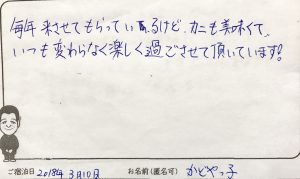 毎年来させてもらっているけど、カニも美味くて、
いつも変わらなく楽しく過ごさせて頂いています!
ご宿泊日 2018年 3月10日 お名前(匿名可) かどやっ子